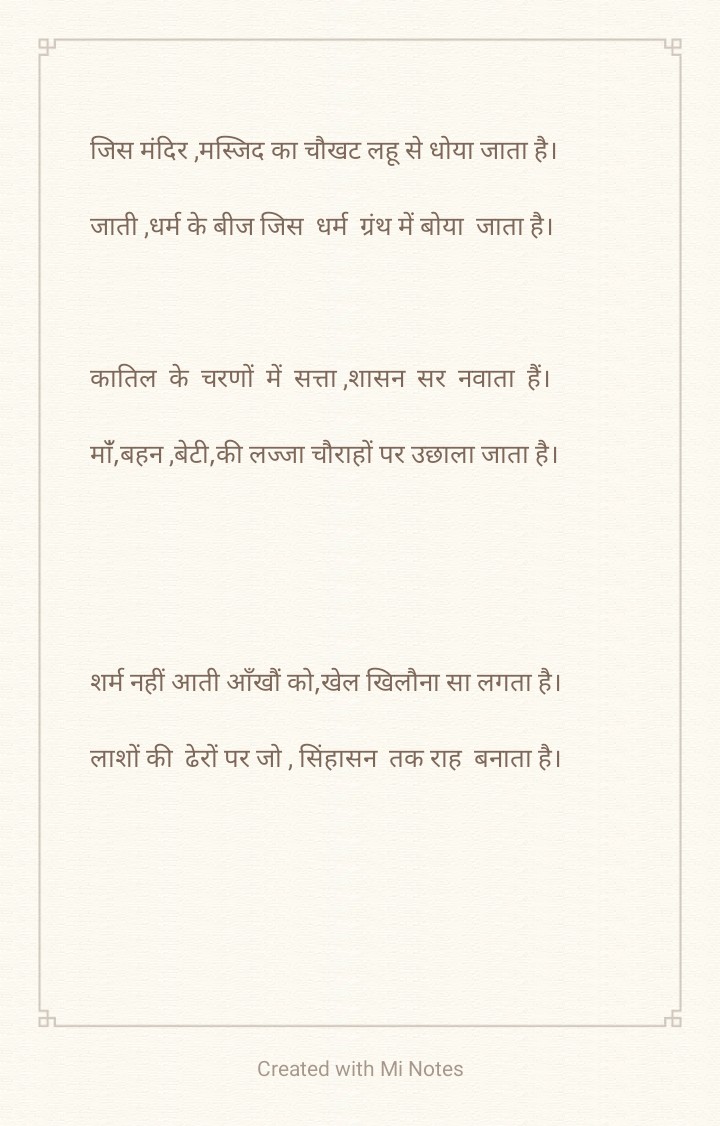 जिस मंदिर ,मस्जिद का चौखट लहू से धोया जाता है।
जाती ,धर्म के बीज जिस  धर्म  ग्रंथ में बोया  जाता है।
कातिल  के  चरणों  में  सत्ता ,शासन  सर  नवाता  हैं।
माँ,बहन ,बेटी,की लज्जा चौराहों पर उछाला जाता है।
शर्म नहीं आती आँखौं को,खेल खिलौना सा लगता है।
लाशों की  ढेरों पर जो , सिंहासन  तक राह  बनाता है।
Created with Mi Notes